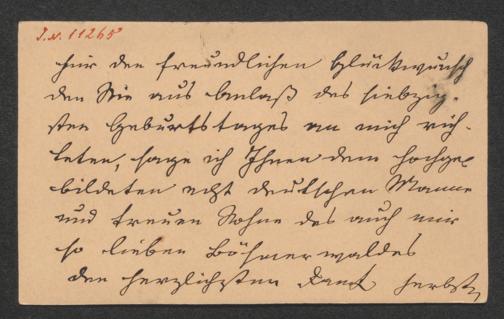 J.N. 11265
für den freundlichen Glückwunsch
den Sie aus Anlaß des siebzig-
sten Geburtstages an mich rich-
teten, sage ich Ihnen dem hochge-
bildeten echt deutschen Manne
und treuen Sohne des auch mir
so lieben Böhmerwaldes
den herzlichsten Dank